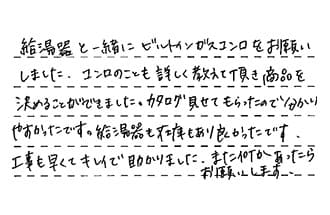 給湯器と一緒にビルトインガスコンロをお願い
しました。コンロのことも詳しく教えて頂き商品を
決めることができました。カタログ見せてもらったので分かり
やすかったです。給湯器も在庫もあり良かったです。
工事も早くてキレイで助かりました。また何かあったら
お願いします。